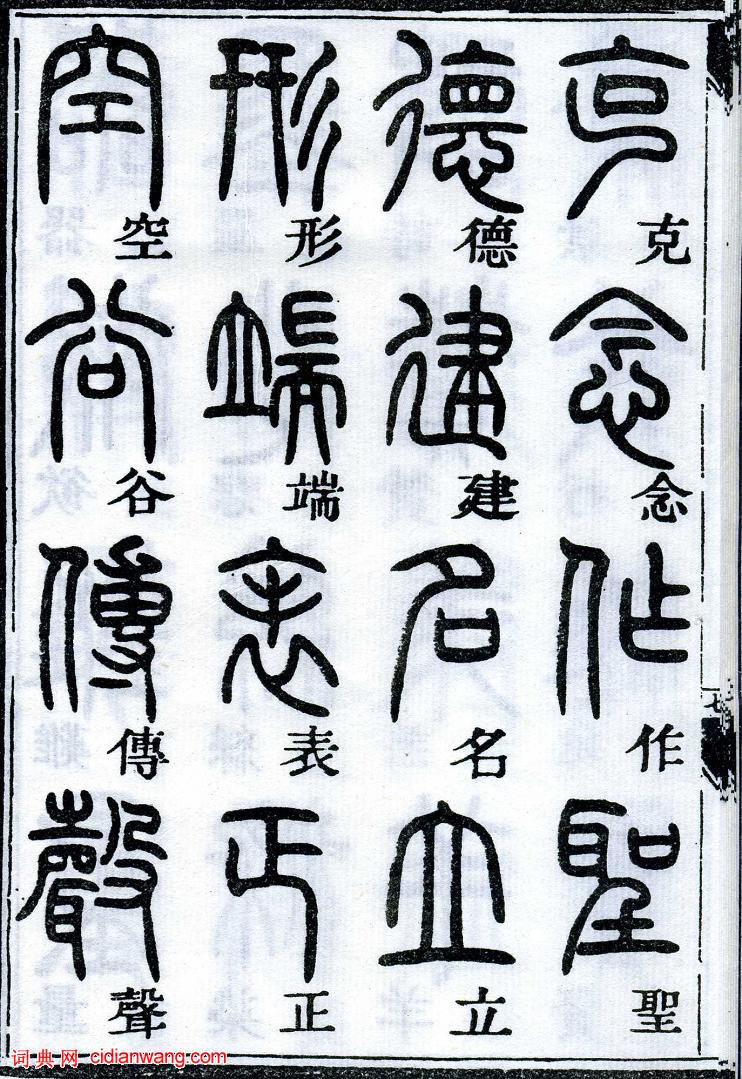 克念作聖
德建名立
形端表正
空谷傳聲
七
词典网 cidianwang.com